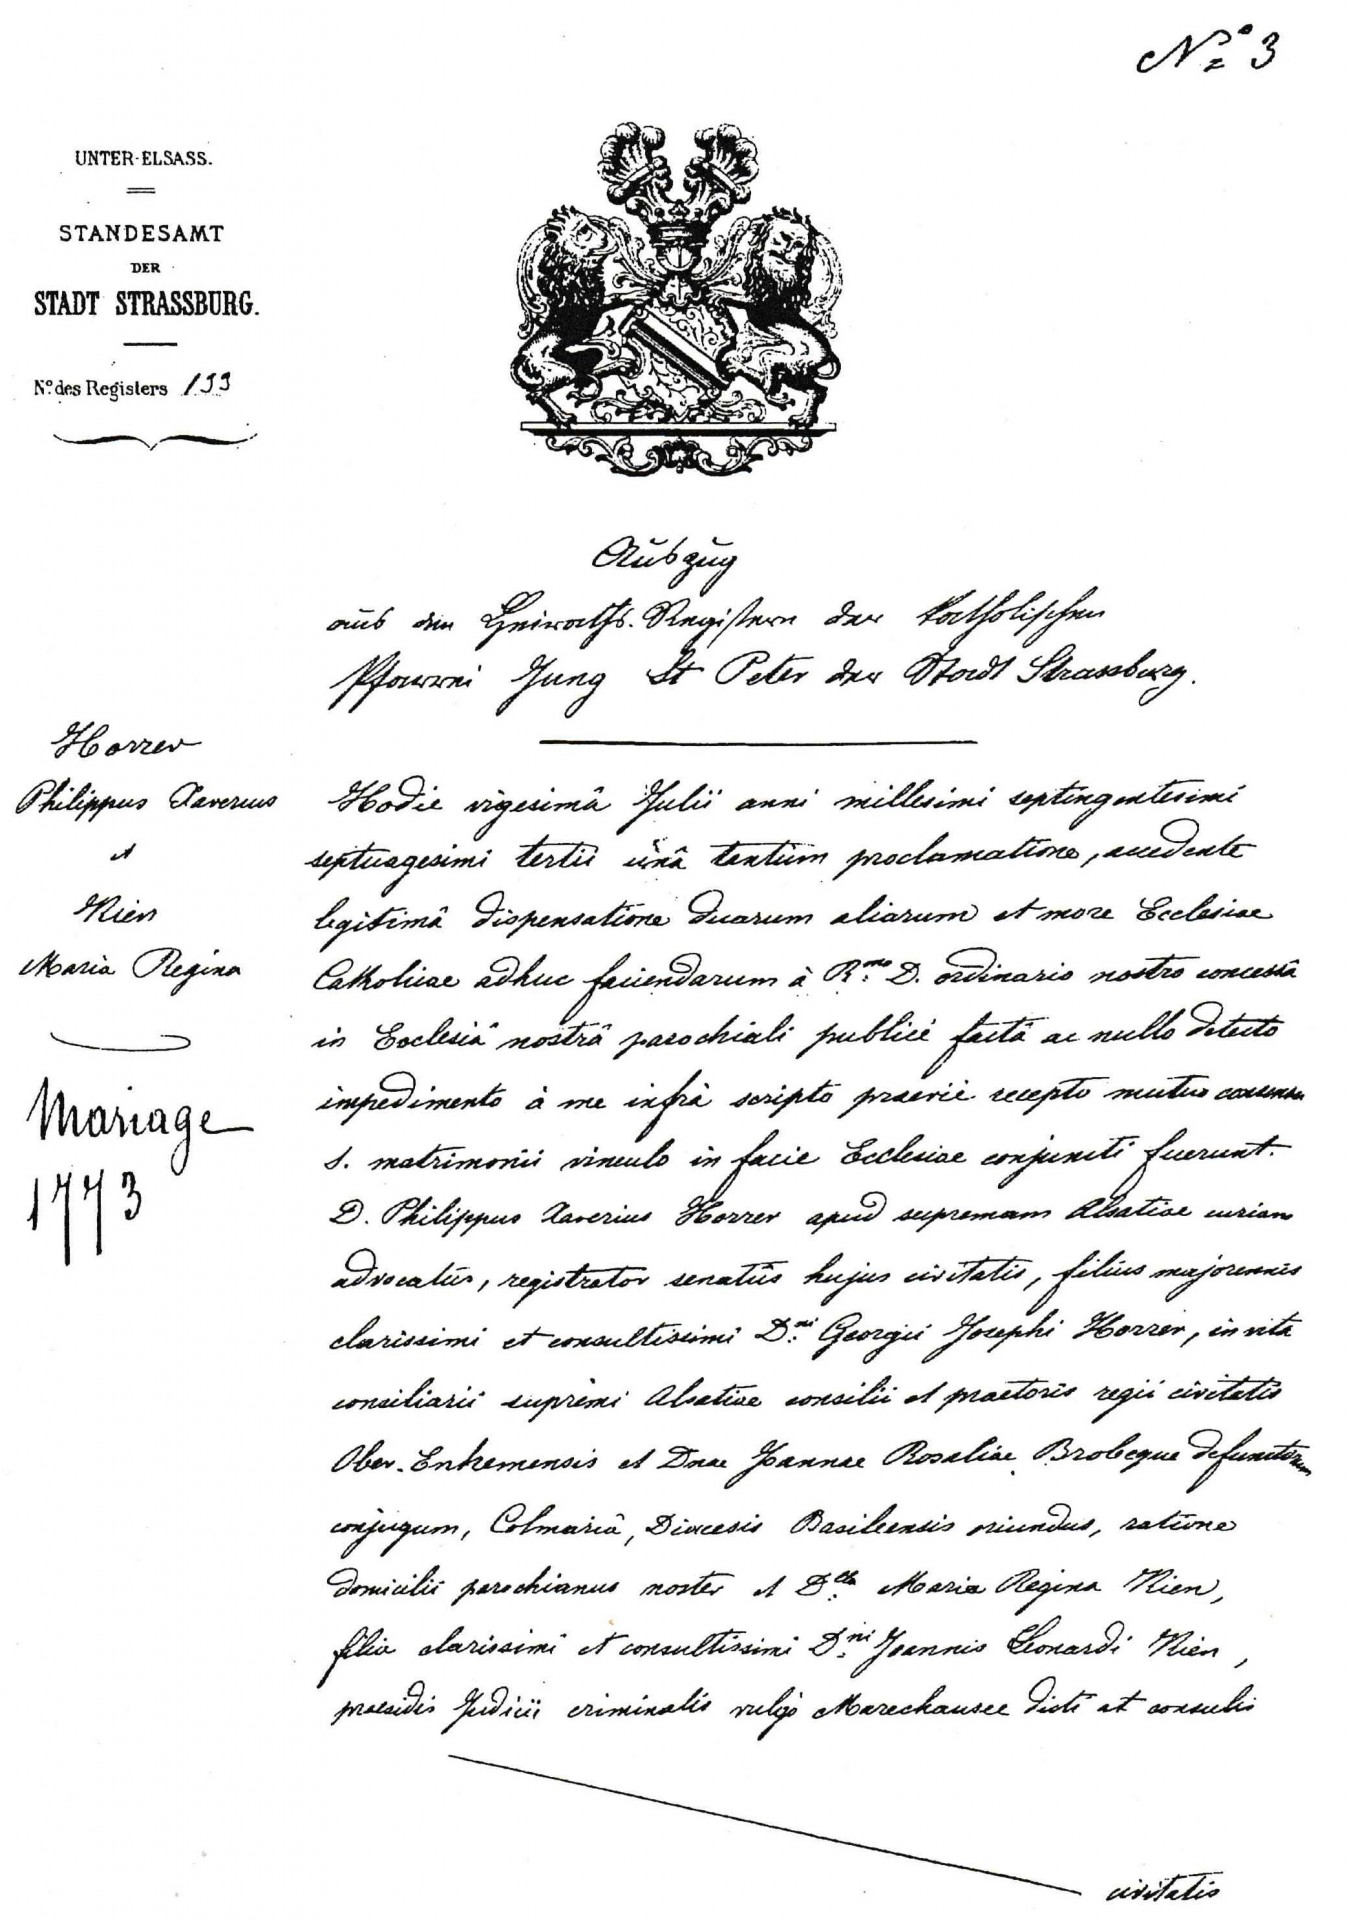 Nº 3
UNTER-ELSASS.
STANDESAMT
DER
STADT STRASSBURG.
Nº des Registers 133
Auszug
aus den Heiraths-Registern der katholischen
Pfarrei Jung St Peter der Stadt Strassburg.
Horrer
Philippus Xaverius
et
Rien
Maria Regina
Mariage
1773
Hodie vigesimâ Julii anni millesimi septingentesimi
septuagesimi tertii unâ tantum proclamatione, accedente
legitimâ dispensatione duarum aliarum et more Ecclesiae
Catholicae adhuc faciendarum à R.mo D. ordinario nostro concessâ
in Ecclesiâ nostrâ parochiali publicè factâ ac nullo detecto
impedimento à me infrà scripto praeviè recepto mutuo consensu
s. matrimonii vinculo in facie Ecclesiae conjuncti fuerunt.
D. Philippus Xaverius Horrer apud supremam Alsatiae curiam
advocatus, registrator senatûs hujus civitatis, filius majorennis
clarissimi et consultissimi D.ni Georgii Josephi Horrer, in vita
consiliarii supremi Alsatiae consilii et praetoris regii civitatis
Ober-Enhemensis et Dnae Joannae Rosaliae Brobeque defunctorum
conjugum, Colmariâ, Diocesis Basileensis oriundus, ratione
domicilii parochianus noster et D.lla Maria Regina Rien,
filia clarissimi et consultissimi D.ni Joannis Leonardi Rien,
praesidis Judicii criminalis vulgò Marechausee dicti et consulis
civitatis